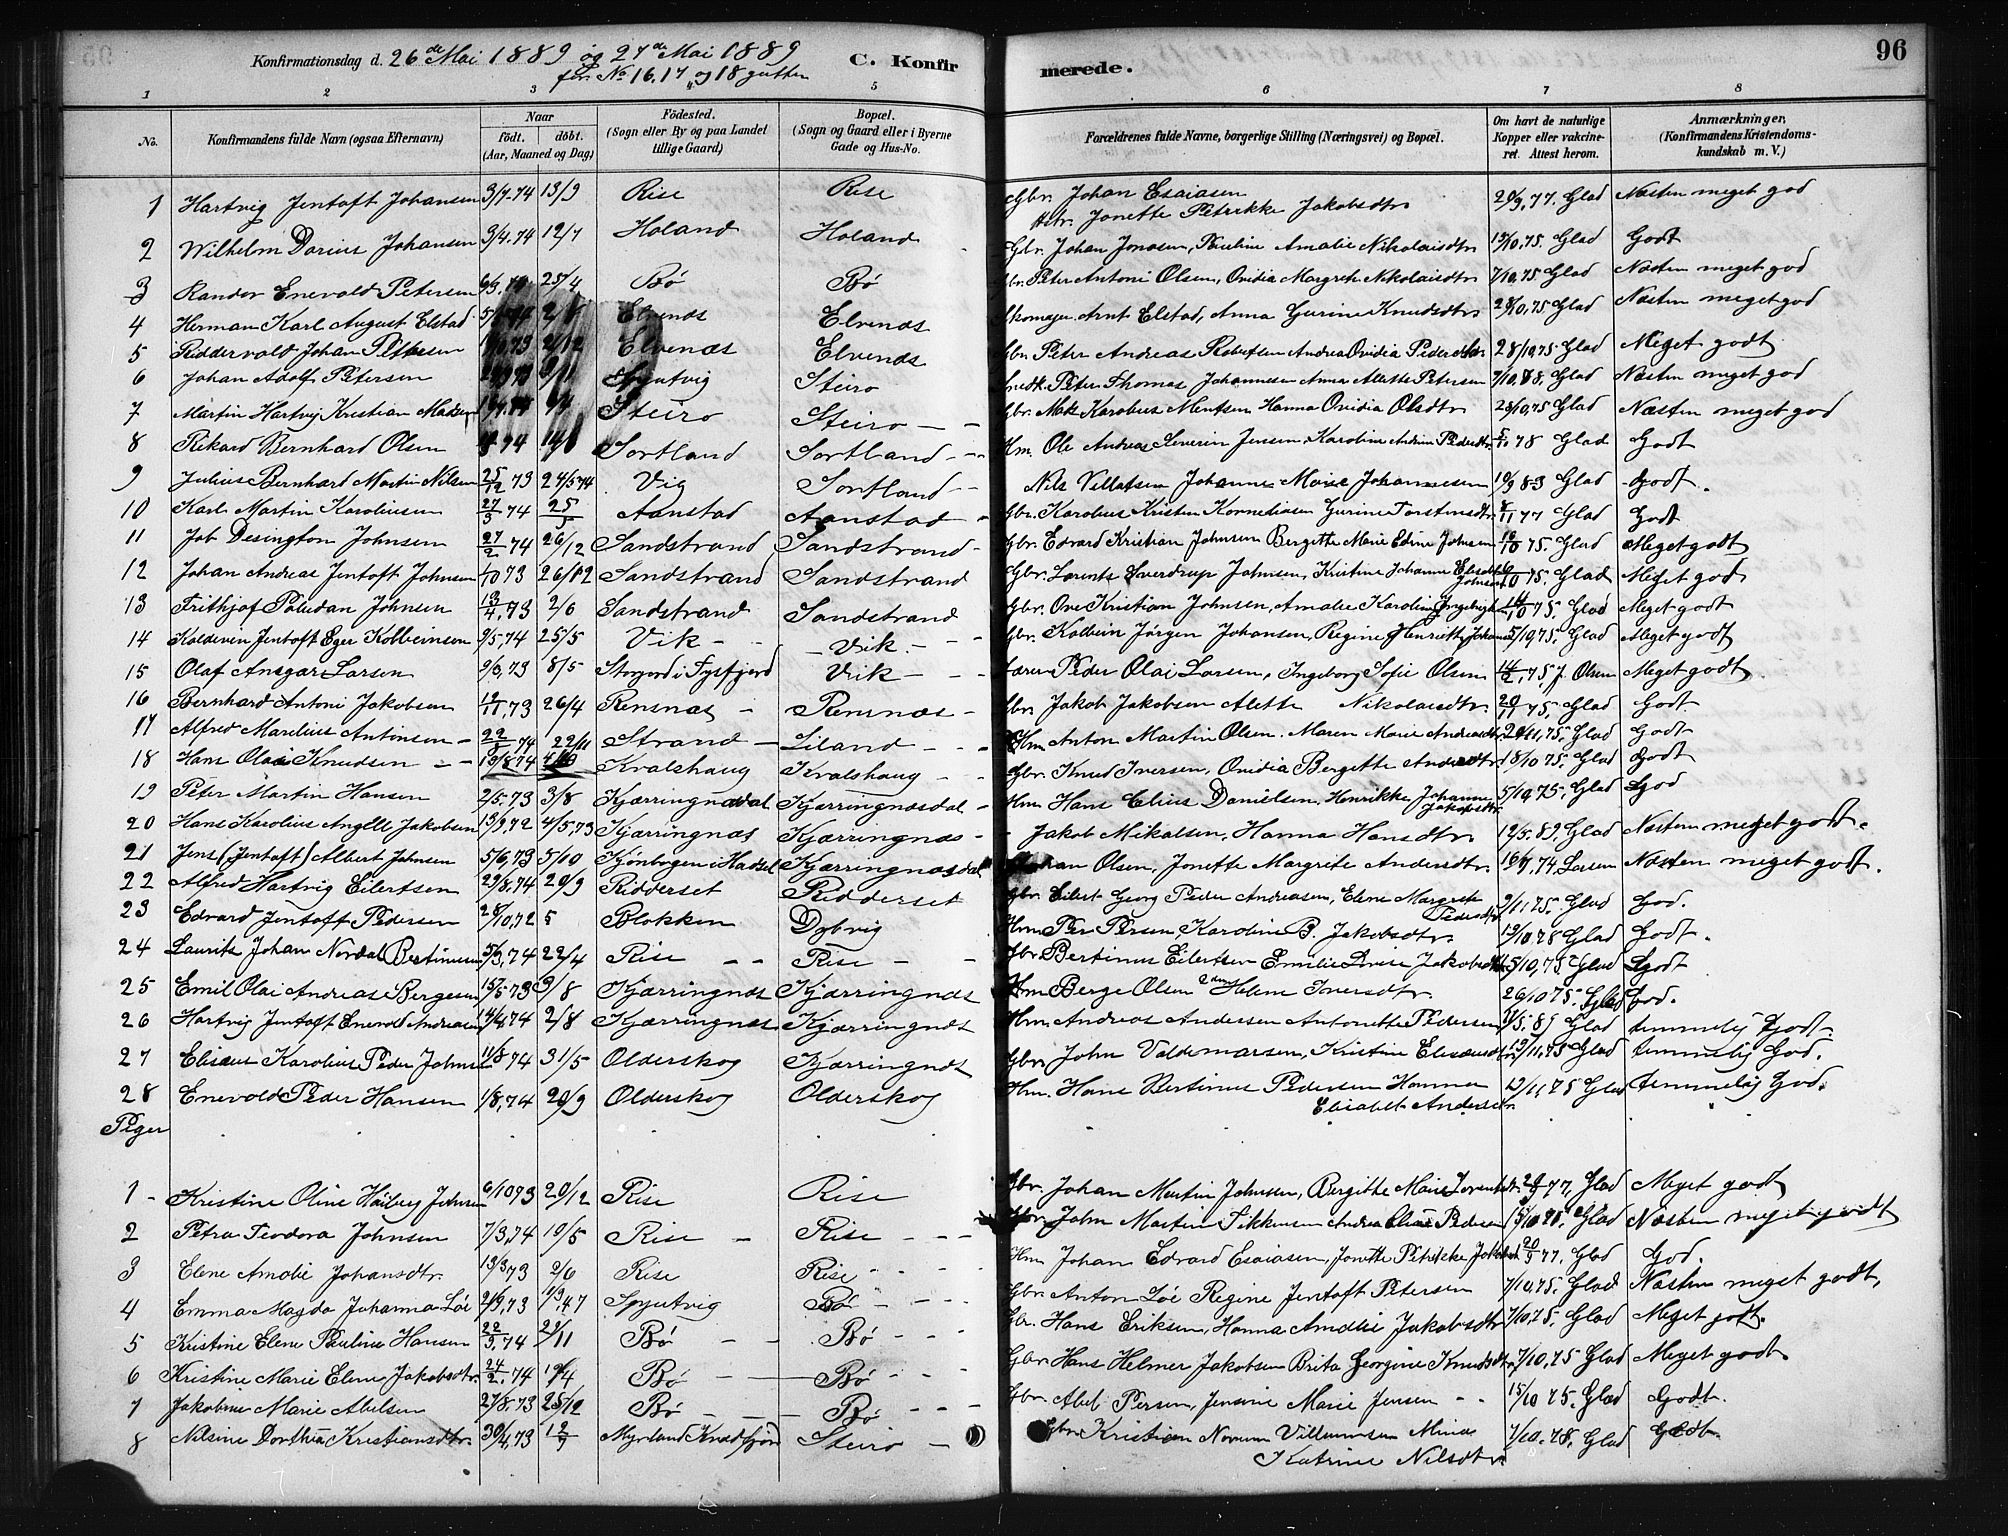 Konfirmationsdag d. 26de Mai 1889 og 27de Mai 1889 C. Konfirmerede. 96
for No 16, 17 og 18 gutter
1 2 3 4 5 6 7 8
No. Konfirmandens fulde Navn (ogsaa Efternavn) Naar født. døbt. (Aar, Maaned og Dag) Fødested. (Sogn eller By og paa Landet tillige Gaard) Bopæl. (Sogn og Gaard eller i Byerne Gade og Hus-No. Forældrenes fulde Navne, borgerlige Stilling (Næringsvei) og Bopæl. Om havt de naturlige Kopper eller vakcineret. Attest herom. Anmærkninger. (Konfirmandens Kristendomskundskab m. V.)
1 Hartvig Jentoft Johansen 3/7 74 13/9 Rise Rise Gbr. Johan Esaiasen Hstr. Jonette Petrikke Jakobsdtr. 20/9 77. Glad Næsten meget god
2 Wilhelm Darius Johansen 3/4 74 12/7 Holand Holand Gbr. Johan Jonasen, Pauline Amalie Nikolaisdtr 13/10,75. Glad Godt
3 Randor Enevold Petersen 25/4 Bø Bø Gbr. Peter Antoni Olsen, Ovidia Margrete Nikolaisdtr 7/10,75 Glad Næsten meget god
4 Herman Karl August Elstad Elvenæs Elvenæs Skomager. Arnt Elstad, Anna Gurine Knudsdtr 28/10,75. Glad Næsten meget god
5 Riddervold Johan Petersen Elvenæs Elvenæs Gbr. Peter Andreas Robertsen Andrea Ovidia Pedersdtr 28/10,75 Glad Meget godt
6 Johan Adolf Petersen Spjutvig Steiro Snedk. Peter Thomas Johannesen Anna Alette Petersen 7/10,78. Glad Næsten meget god
7 Martin Hartvig Kristian Maksen Steiro Steiro Gbr. Mak Karolius Mentsen Hanna Ovidia Olsdtr 28/10,75 Glad Næsten meget god
8 Rikard Bernhard Olsen 74 Sortland Sortland Hm. Ole Andreas Severin Jensen, Karoline Andrine Pedersdtr. 78 Glad Godt
9 Julius Bernhard Martin Nilsen 25/12 73 24/5 74 Vig Sortland Nils Villatsen Johanna Marie Johannesen 10/9 83 Glad Godt.
10 Karl Martin Karoliusen 27/3 74 25/5 Aanstad Aanstad Gbr. Karolius Kristen Korneliasen Gurine Torstensdtr 8/11 77 Glad Godt
11 Job Desington Johnsen 27/2 74 26/12 Sandstrand Sandstrand Gbr. Edvard Kristian Johnsen Bergitte Marie Edine Johnsen 75. Glad Meget godt
12 Johan Andreas Jentoft Johnsen 1/10 73 26/12 Sandstrand Sandstrand Gbr. Lorents Sverdrup Johnsen, Kristine Johanne Elisabet Johnsen 75. Glad Meget god
13 Frithjof Paludan Johnsen 13/4,73 2/6 Sandstrand Sandstrand Gbr. Ove Kristian Johnsen, Amalie Karoline 75. Glad Meget godt
14 Koldevin Jentoft Eger Kolbeinsen 9/5,74 25/5 Vik Vik Gbr. Kolbein Jørgen Johansen, Regine Henriette Johanne 5/10,75. Glad Meget godt
15 Olaf Ansgar Larsen 9/3,73 8/5 Storjord i Tysfjord Vik Lærer Peder Olai Larsen, Ingeborg Sofie Olsen 14/2,75. J. Olsen Meget godt
16 Bernhard Antoni Jakobsen 12/11,73 26/4 Rensnæs Rensnæs Gbr. Jakob Jakobsen Alette Nikolaisdtr. 20/11 75. Glad Godt
17 Alfred Marelius Antonsen 22/8 74 22/11 Strand Liland Hm. Anton Martin Olsen. Maren Marie Andreasdtr 20/11,75. Glad Godt
18 Hans Olai Knudsen 19/8 74 Kvalshaug Kvalshaug Gbr. Knud Iversen, Ovidia Bergette Andersdtr 18/10 75. Glad Godt
19 Peter Martin Hansen 2/5.73 3/8 Kjærringnæsdal Kjærringnæsdal Hm Hans Elius Danielsen, Henrikke Johanne Jakobsdtr 5/10,75. Glad God
20 Hans Karolius Angell Jakobsen 13/9,72 4/5,73 Kjærringnæs Kjærringnæs Jakob Mikalsen, Hanna Hansdtr 12/5.89, Glad Næsten meget godt.
21 Jens (Jentoft) Albert Johnsen 5/6,73 5/10 Kjønbogen i Hadsel Kjærringnæsdal Johan Olsen, Jonette Margrete Andersdtr. 16/7,74, Larsen Næsten meget godt.
22 Alfred Hartvig Eilertsen 29/8,74 20/9 Ridderset Ridderset Gbr. Eilert Georg Peder Andreasen, Elene Margrete Pedersdtr 9/11,75. Glad God.
23 Edvard Jentoft Pedersen 28/10,72 5 Blokken Dybvig Hm Per Persen, Karoline B. Jakobsdtr. 13/10,78 Glad Godt.
24 Laurits Johan Nordal Bertinusen 5/3,74 22/4 Rise Rise Gbr. Bertinus Eilertsen Emilie Lovise Jakobsdtr 5/10,75 Glad Godt
25 Emil Olai Andreas Bergesen 15/5 73 9/8 Kjærringnæs Kjærringnæs Hm Berge Olsen Helene Iversdtr. 26/10 75. Glad God.
26 Hartvig Jentoft Enevold Andreasen 74 2/8 Kjærringnæs Kjærringnæs Hm. Andreas Andersen Antonette Pedersen 11/5.89 Glad temmelig Godt.
27 Elisæus Karolius Peder Johnsen 11/3 74 31/5 Olderskog Kjærringnæs Gbr. John Valdemarsen, Kristine Elisæusdtr 13/11,75 Glad temmelig God.
28 Enevold Peder Hansen 1/8,74 20/9 Olderskog Olderskog Hm. Hans Bertinus Pedersen Hanna Elisabet Andersdtr. 13/11,75 Glad temmelig God.
Piger
1 - Kristine Oline Heiberg Johnsen 6/10 73 20/12 Rise Rise Gbr. Johan Martin Johnsen, Bergitte Marie Lorentsdtr. 77, Glad Meget godt
2 Petra Teodora Johnsen 7/3,74 10/5 Rise Rise Gbr. John Martin Sikkensen Andrea Elisæ Pedersen 15/10 75. Glad Næsten meget godt
3 Elene Amalie Johansdtr. 13/3 73 2/6 Rise Rise Hm Johan Edvard Esaiasen, Jonette Petrikke Jakobsd 20/9 77. Glad God.
4 Emma Magda Johanna Løe 2/9,73 Spjutvig Bø Gbr. Anton Løe Regine Jentoft Petersen 7/10,75. Glad Næsten meget godt,
5 Kristine Elene Pauline Hansen 22/9.74 22/11 Bø Bø Gbr. Hans Eriksen, Hanna Amalie Jakobsdtr 7/10,75. Glad Meget godt.
6 Kristine Marie Elene Jakobsdtr 24/2.74 19/4 Bø Bø Gbr. Hans Helmer Jakobsen Brita Georgine Knudsdtr. 7/10,75 Glad Meget godt
7 Jakobine Marie Abelsen 27/8.73 25/12 Bø Bø Gbr. Abel Persen, Jensine Marie Jensen 15/10 75. Glad Godt.
8 Nilsine Dorthea Kristiansdtr. 30/4,73 Myrland Knedfjord Steiro Gbr. Kristian Norum Villumsen Minas Katrine Nilsdtr. 7/10.78. Glad Godt.